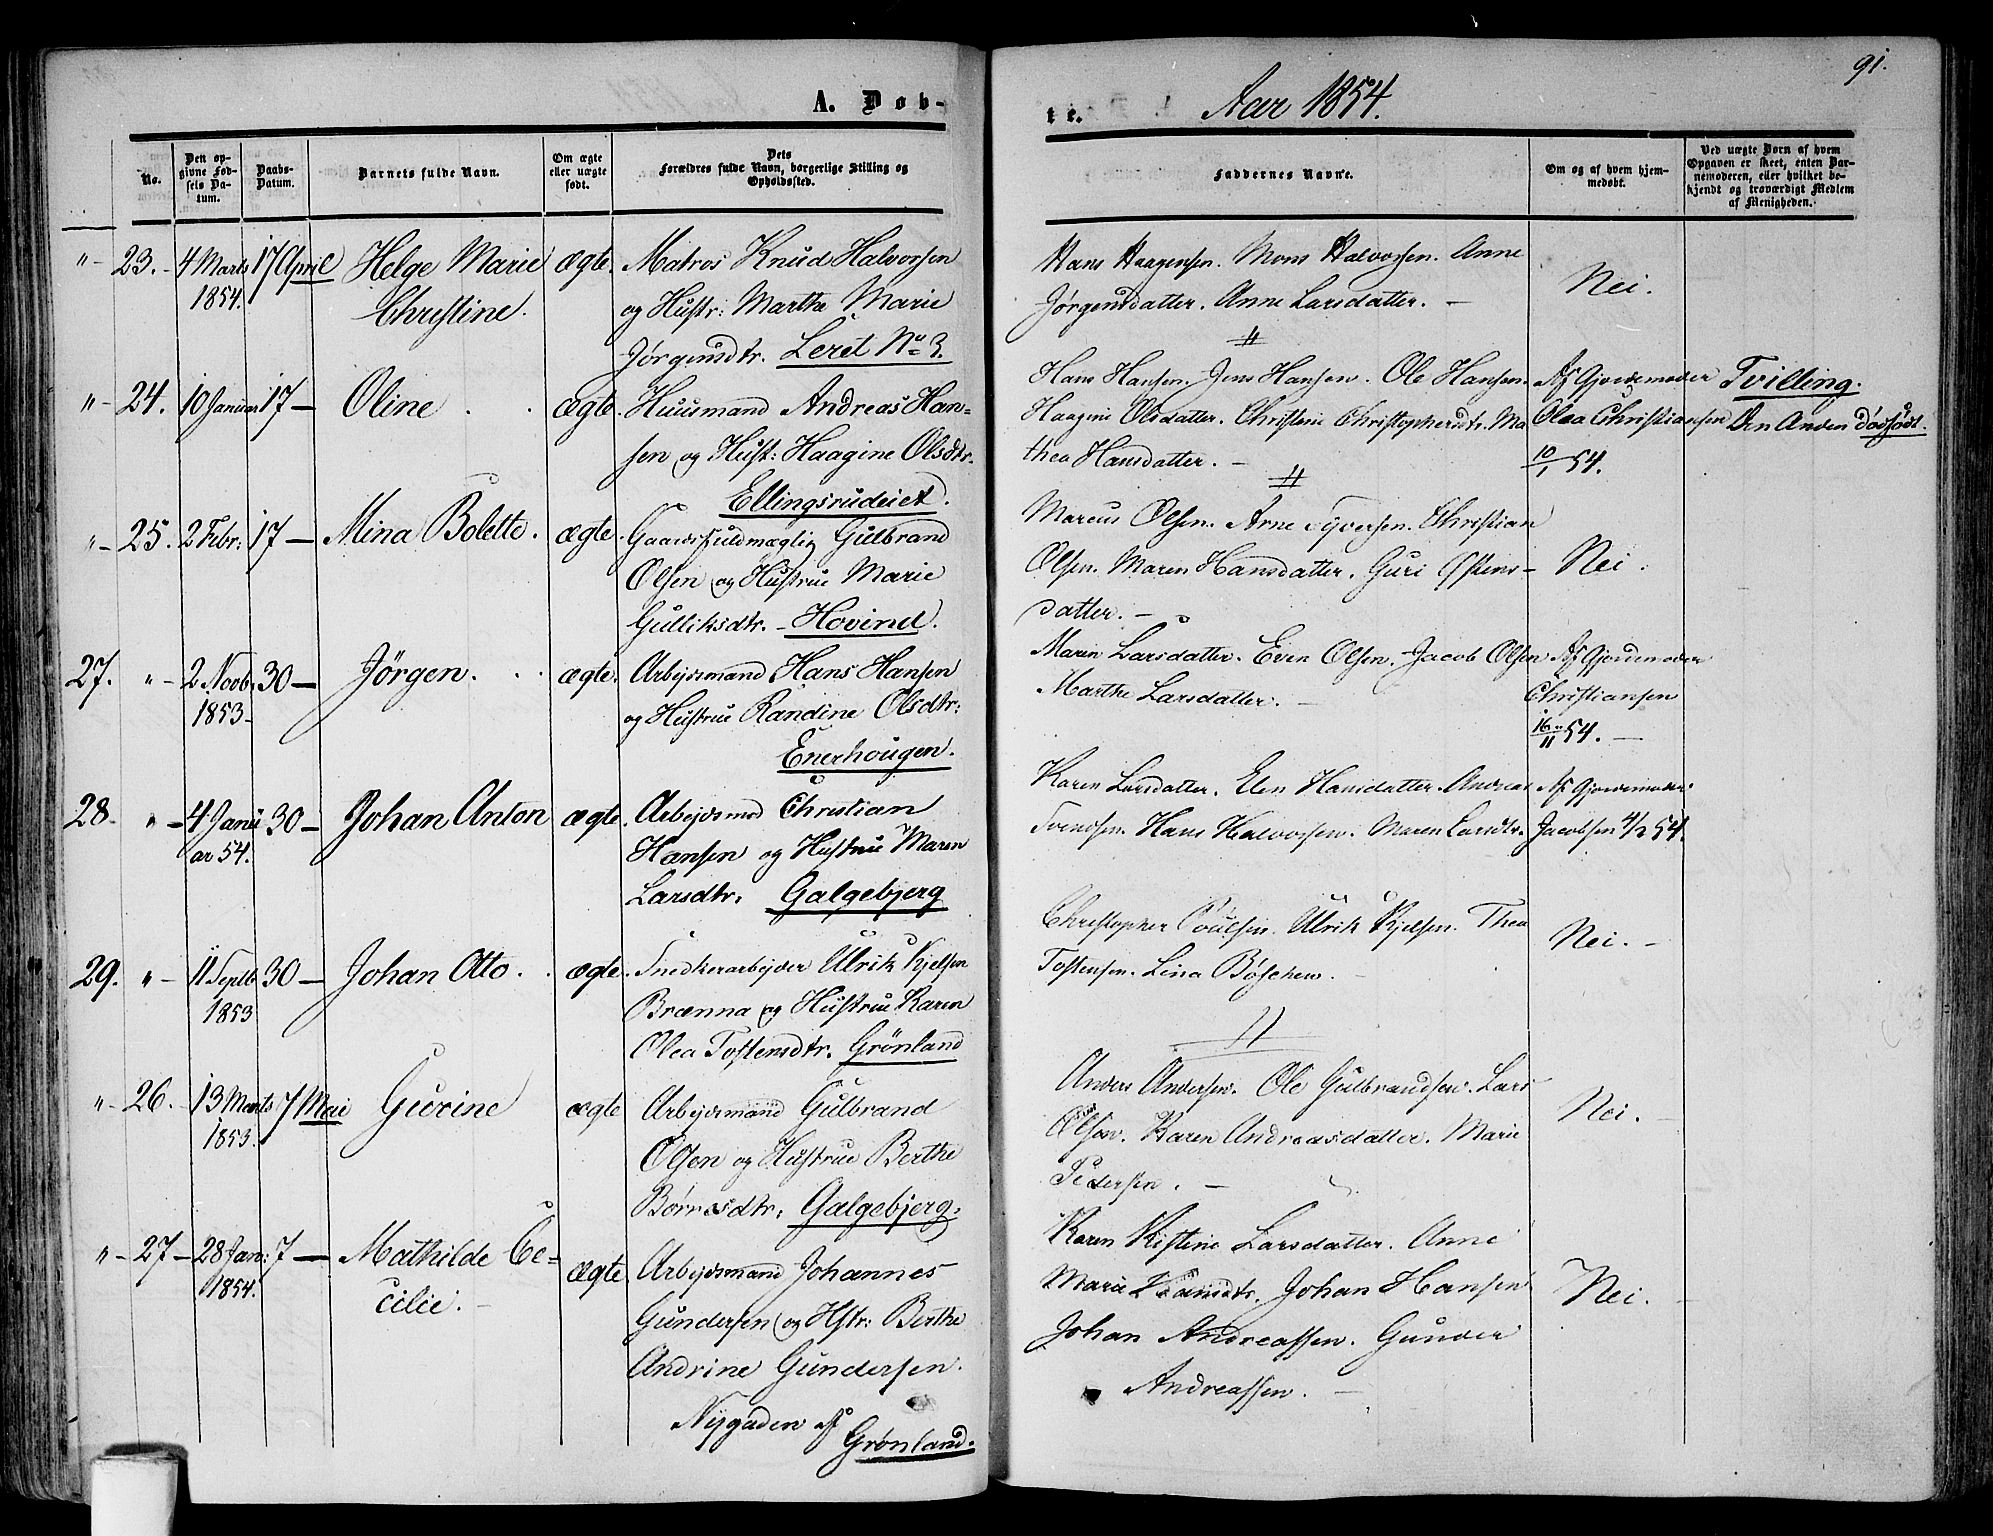 A. Døb-
te.
Aar 1854.
91.
No.
Den op-
givne Fød-
sels Da-
tum.
Daabs-
Datum.
Barnets fulde Navn.
Om ægte
eller uægte
født.
Dets
Forældres fulde Navn, borgerlige Stilling og
Opholdssted.
Faddernes Navne.
Om og af hvem hjem-
medøbt.
Ved uægte Børn af hvem
Opgaven er skeet, enten Bar-
nemoderen, eller hvilket be-
kjendt og troværdigt Medlem
af Menigheden.
" - 23. - 4 Marts 17 April Helge Marie ægte. Matros Knud Halvorsen
1854. Christine. og Hustr: Marthe Marie
Jørgensdtr. Leret No 3.
Hans Haagensen. Mons Halvorsen. Anne
Jørgensdatter. Anne Larsdatter. —
Nei.
" - 24. 10 Januar 17 — Oline . . ægte. Huusmand Andreas Han-
sen og Hust: Haagine Olsdtr.
Ellingsrudeiet.
Hans Hansen. Jens Hansen. Ole Hansen. Af Gjordemoder Tvilling.
Haagine Olsdatter. Christine Christopherdtr. Ma Olea Christiansen Den Anden dødfødt.
thea Hansdatter. — 10/1 54.
" - 25. 2 Febr: 17 — Mina Bolette. ægte. Gaardsfuldmægtig Gulbrand
Olsen og Hustrue Marie
Gulliksdtr. - Hovind.
Marcus Olsen. Arne Syversen. Christian
Olsen. Maren Hansdatter. Guri Østens- Nei.
datter. —
27. " - 2 Novb. 30 — Jørgen. . . ægte. Arbejdsmand Hans Hansen
1853 - og Hustrue Randine Olsdtr:
Enerhougen.
Maren Larsdatter. Even Olsen. Jacob Olsen Af Gjordemoder
Marthe Larsdatter. — Christiansen
16/11 54. —
28. " - 4 Janu 30 — Johan Anton ægte. Arbejdsmd Christian
ar 54. Hansen og Hustrue Maren
Larsdtr. Galgebjerg
Karen Larsdatter. Elen Hansdatter. Andreas Af Gjordemoder
Svendsen. Hans Halvorsen. Maren Larsdtr. Jacobsen 4/2 54.
29. " - 11 Septb 30 — Johan Otto. . ægte. Snedkerarbejder Ulrik Kjelsen
1853 Brænna og Hustrue Karen
Olea Tostensdtr. Grönland
Christopher Poulsen. Ulrik Kjelsen. Thea
Tostensen. Lina —
Nei. —
" - 26. 13 Marts 7 Mai Gurine ægte Arbejdsmand Gulbrand
1853. Olsen og Hustrue Berthe
Galgebjerg.
Anders Andersen. Ole Gulbrandsen. Lars
Olsen. Karen Andreasdatter. Marie Nei. —
Pedersen. —
" - 27 - 28 Jan: 7 — Mathilde Ce- ægte Arbejdsmand Johannes
1854. cilie. - Gundersen og Hstr: Berthe
Andrine Gundersen.
Nygaden af
Grønland.
Karen Kistine Larsdatter. Anne
Marie Johan Hansen Nei. -
Johan Andreassen. Gunder
Andreassen. —